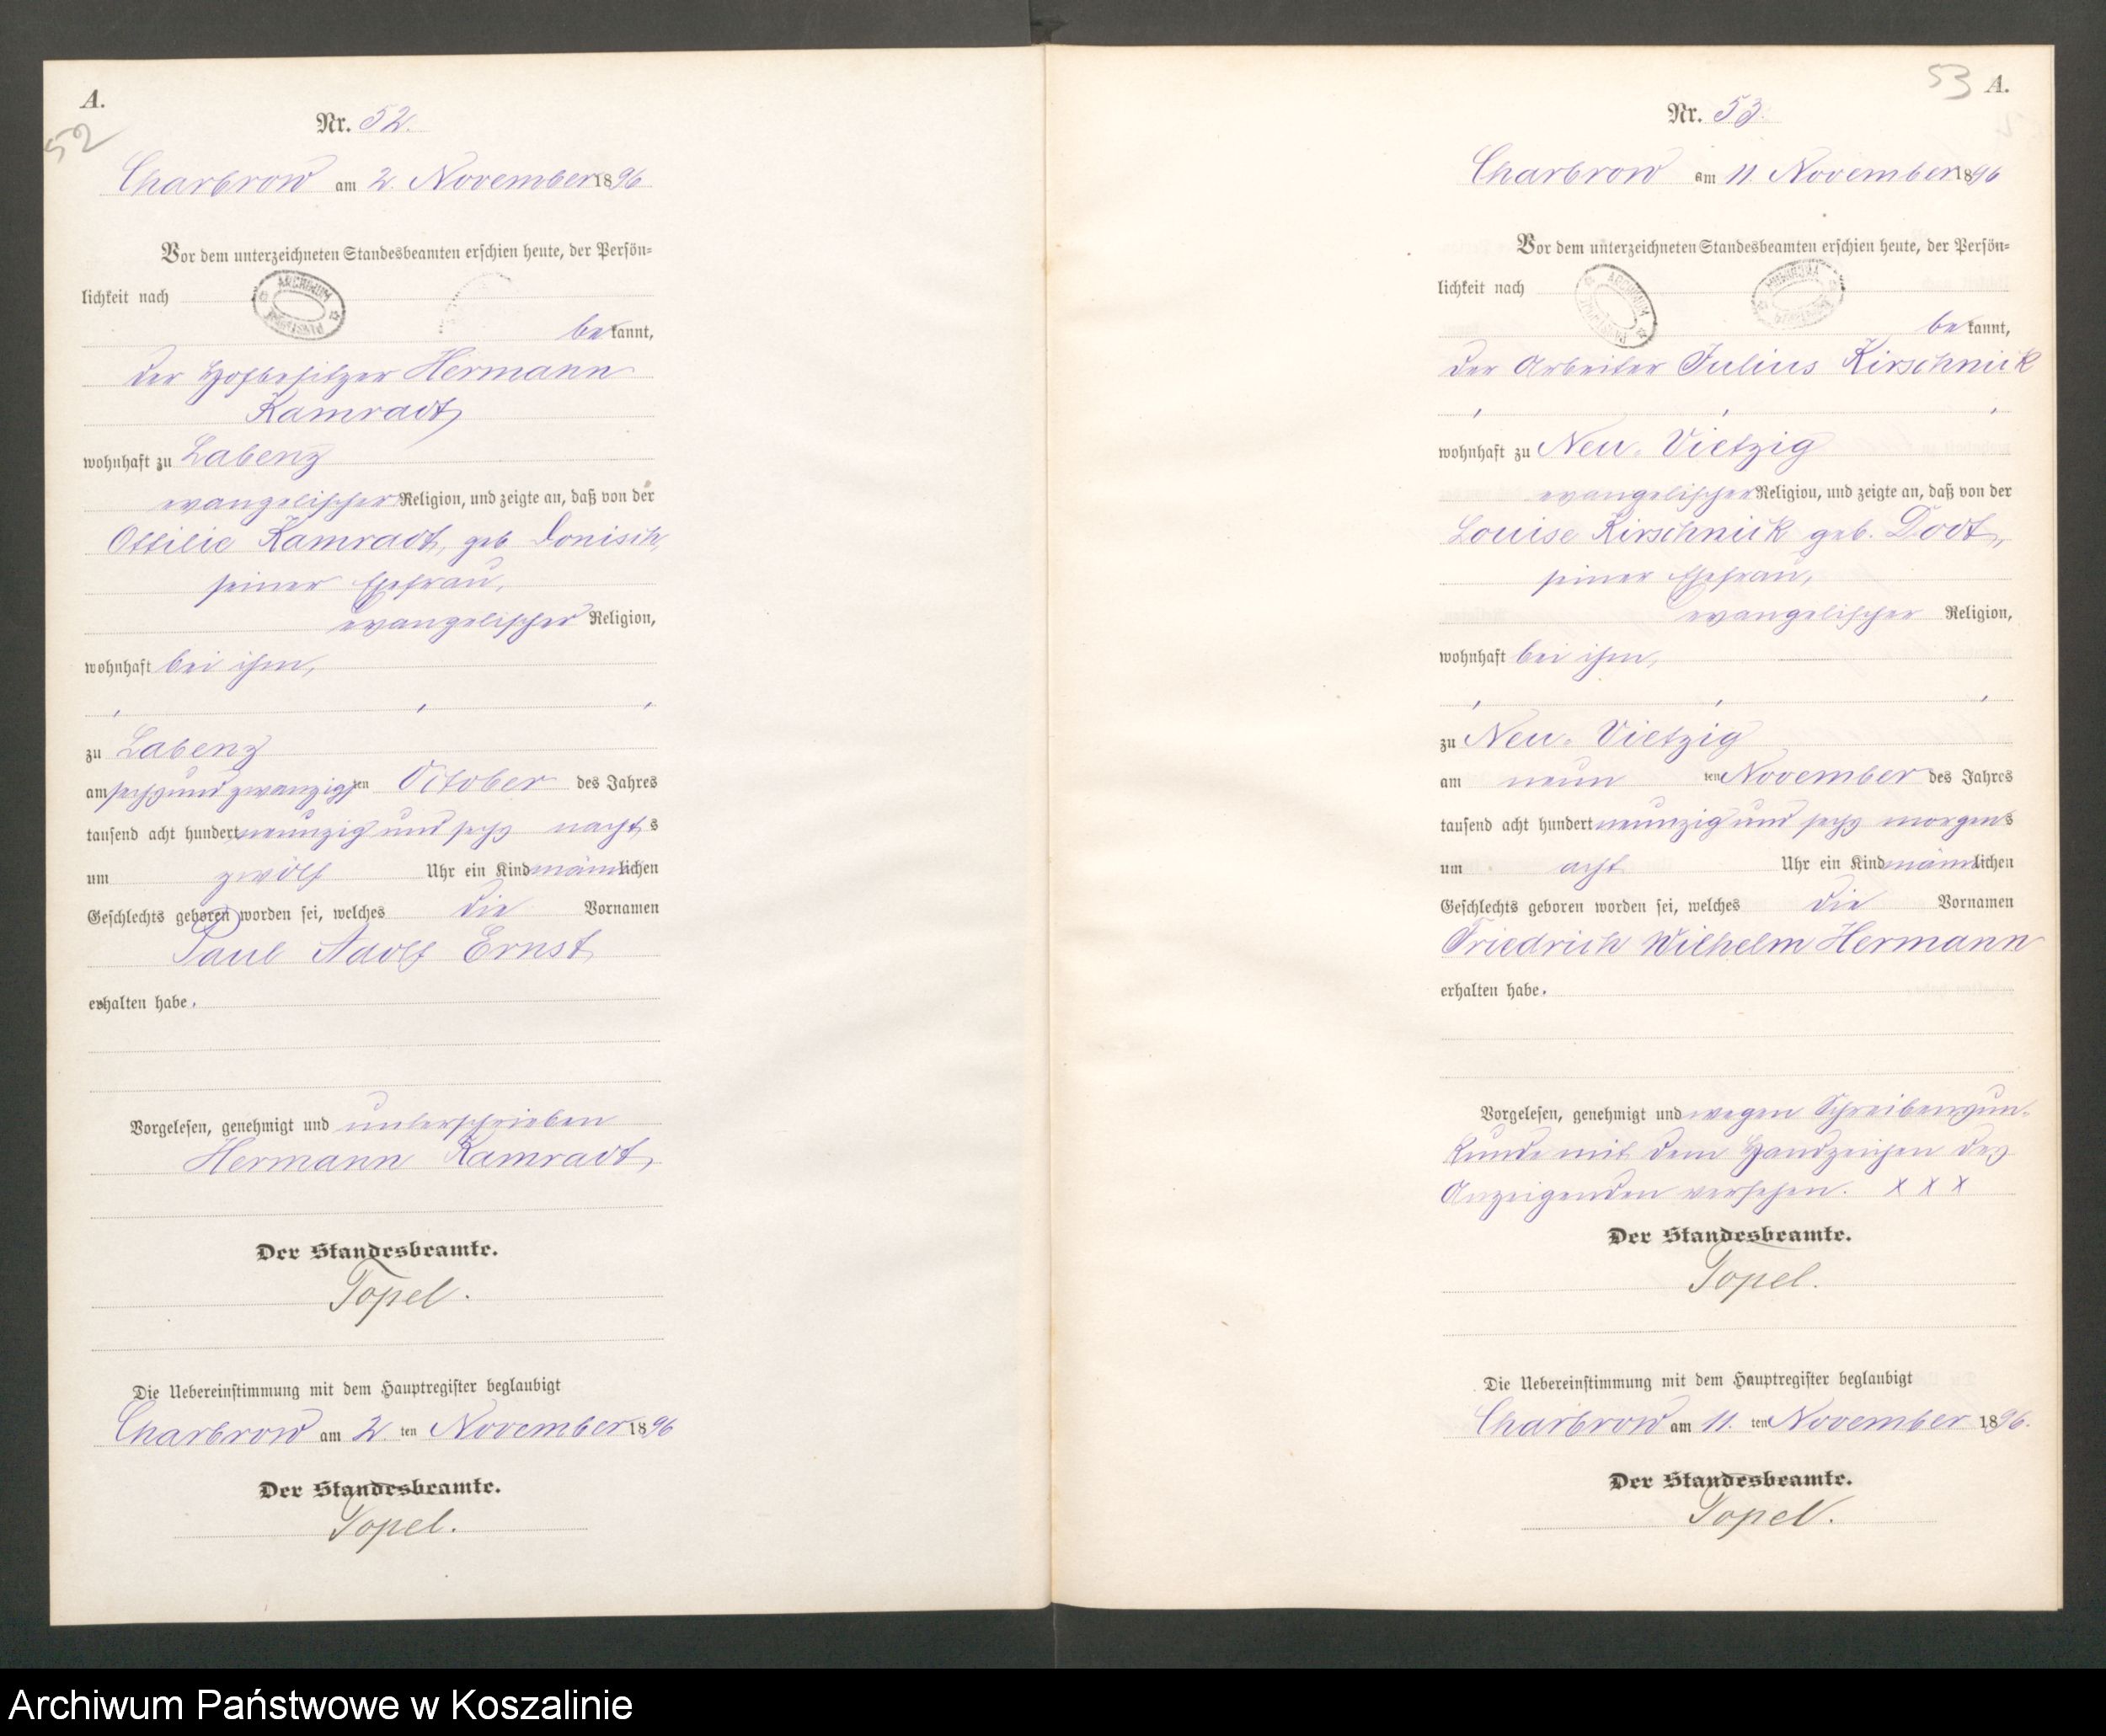 A.
52
Nr. 52.
Charbrow am 2. November 1896
Vor dem unterzeichneten Standesbeamten erschien heute, der Persön=
lichkeit nach
bekannt,
der Hofbesitzer Hermann
Kamradt,
wohnhaft zu Labenz
evangelischer Religion, und zeigte an, daß von der
Ottilie Kamradt, geb
seiner Ehefrau,
evangelischer Religion,
wohnhaft bei ihm,
zu Labenz
am sechsundzwanzigsten October des Jahres
tausend acht hundert neunzig und sechs nachts
um zwölf Uhr ein Kind männlichen
Geschlechts geboren worden sei, welches die Vornamen
Paul Adolf Ernst
erhalten habe.
Vorgelesen, genehmigt und unterschrieben
Hermann Kamradt,
Der Standesbeamte.
Topel.
Die Uebereinstimmung mit dem Hauptregister beglaubigt
Charbrow am 2. ten November 1896
Der Standesbeamte.
Topel.
53 A.
Nr. 53.
Charbrow am 11. November 1896
Vor dem unterzeichneten Standesbeamten erschien heute, der Persön=
lichkeit nach
bekannt,
der Arbeiter Julius Kirschnick
wohnhaft zu Neu-Vietzig
evangelischer Religion, und zeigte an, daß von der
Louise Kirschnick geb. Dodt,
seiner Ehefrau,
evangelischer Religion,
wohnhaft bei ihm,
zu Neu-Vietzig
am neunten November des Jahres
tausend acht hundert neunzig und sechs morgens
um acht Uhr ein Kind männlichen
Geschlechts geboren worden sei, welches die Vornamen
Friedrich Wilhelm Hermann
erhalten habe.
Vorgelesen, genehmigt und wegen Schreibensun-
kunde mit dem Handzeichen des
Anzeigenden versehen. x x x
Der Standesbeamte.
Topel.
Die Uebereinstimmung mit dem Hauptregister beglaubigt
Charbrow am 11. ten November 1896.
Der Standesbeamte.
Topel.
Archiwum Państwowe w Koszalinie